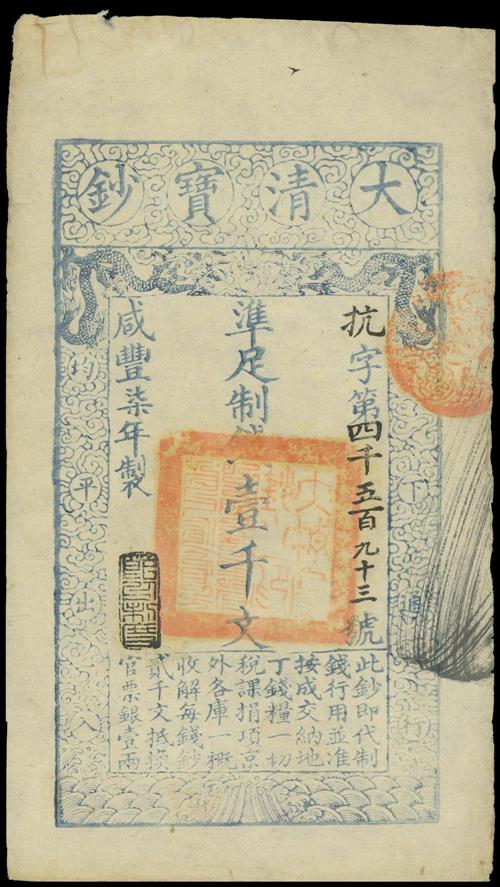 大清寶鈔
下通行
抗字第四千五百九十三號
準足制錢壹千文
咸豐柒年製
均平出入
此鈔即代制
錢行用並准
按成交納地
丁錢糧一切
稅課捐項京
外各庫一概
收解每錢鈔
貳千文抵換
官票銀壹兩